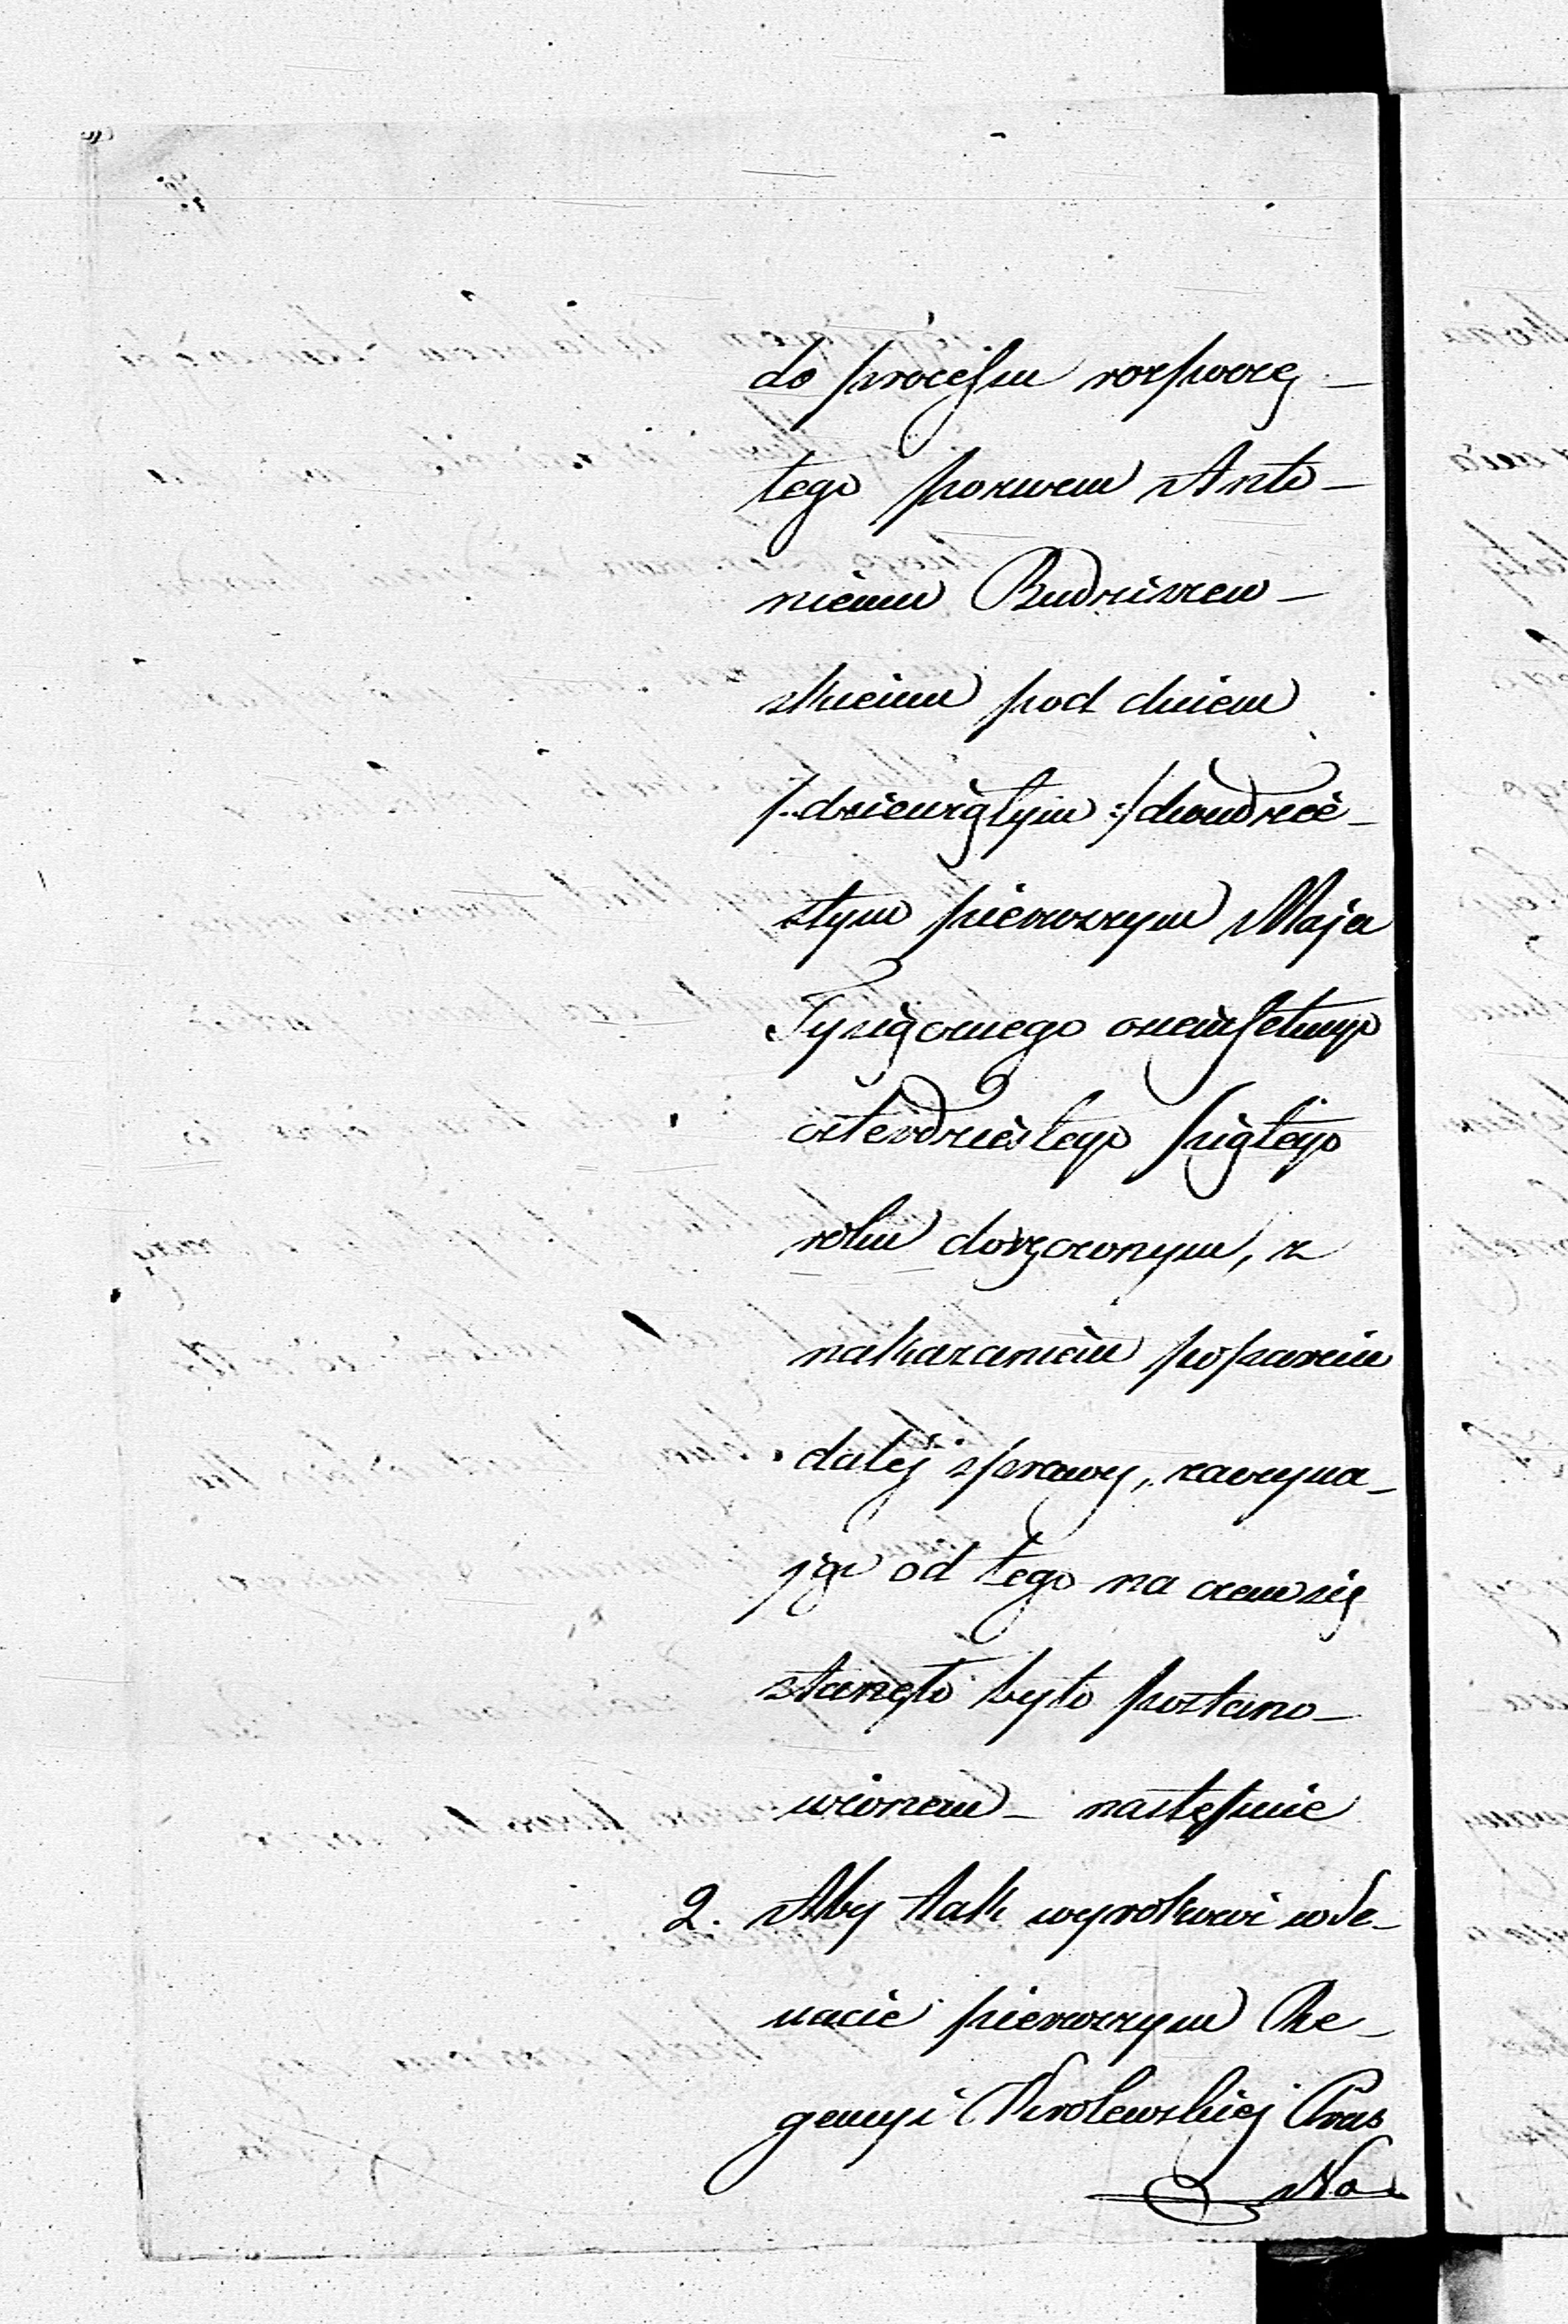 do processu rozpoczę_
tego pozwem Anto_
niemu Budziszew_
skiemu pod dniem
/: dziewiątym :/ dwudzie_
stym pierwszym Maja
Tysiącznego osiemsetnego
czterdziestego piątego
roku doręczonym, z
nakazaniem popareia
daléj sprawy, zaczyna_
jąc od tego na czem się
stanęło było postano_
wionem _ następnie
2. Aby tak wyrokować w Se_
nacie pierwszym Re_
gencyi Krolewskiéj Prus
Na